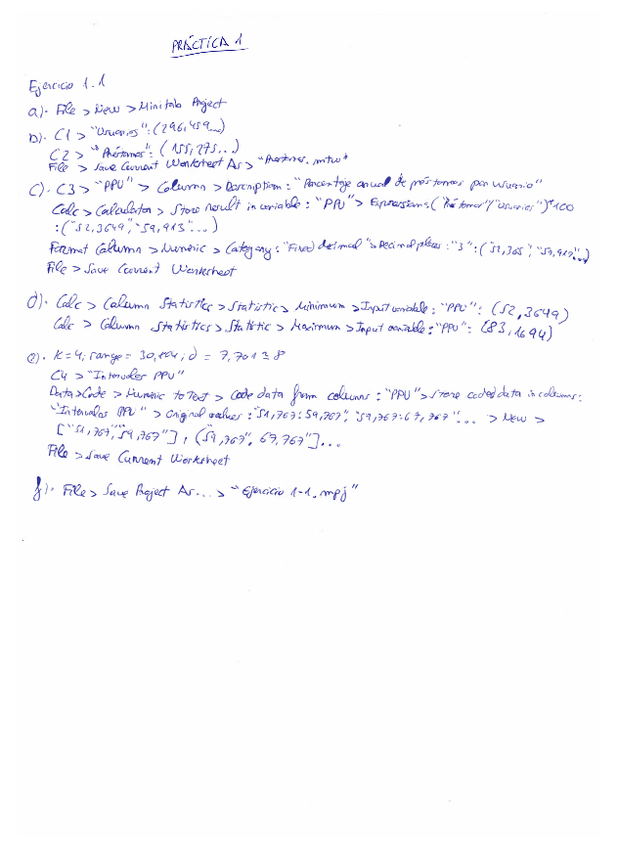 PRÁCTICA 1
Ejercicio 1.1
a). File > New > Minitab Project
b). C1 > "Usuarios": (296, 459...)
C2 > "Préstamos": (155, 275...)
File > Save Current Worksheet As > "Préstamos.mtw"
c). C3 > "PPU" > Column > Description: "Porcentaje anual de préstamos por usuario"
Calc > Calculator > Store result in variable: "PPU" > Expression: ("Préstamos"/"Usuarios")*100
:("52,3649", "59,913"...)
Format Column > Numeric > Category: "Fixed decimal" > Decimal places: "3": ("52,365", "59,913"...)
File > Save Current Worksheet
d). Calc > Column Statistics > Statistic > Minimum > Input variable: "PPU": (52,3649)
Calc > Column Statistics > Statistic > Maximum > Input variable: "PPU": (83,1694)
e). K=4; range = 30,804; d = 7,701 ≅ 8
C4 > "Intervalos PPU"
Data > Code > Numeric to Text > Code data from columns: "PPU" > Store coded data in columns:
"Intervalos PPU" > Original values: "51,767:59,767", "59,767:67,767"... > New >
["51,767", "59,767"], ("59,767", 67,767"]...
File > Save Current Worksheet
f). File > Save Project As... > "Ejercicio 1-1.mpj"